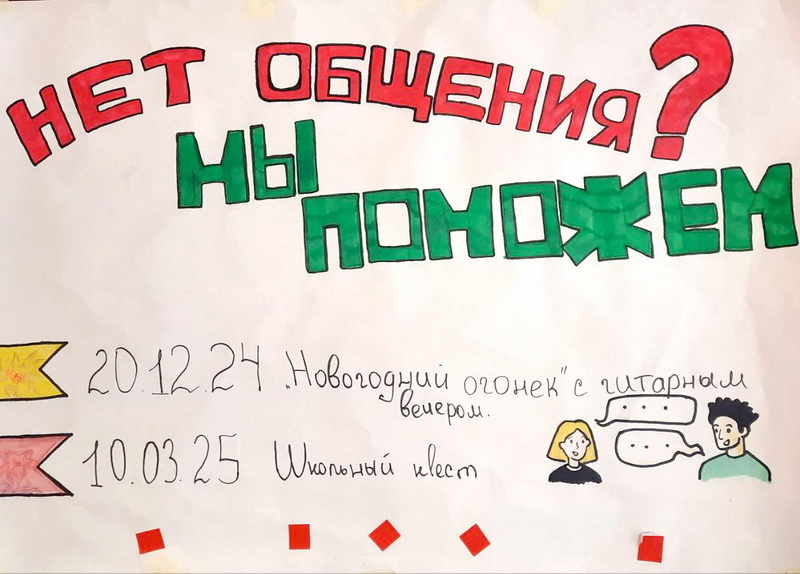 НЕТ ОБЩЕНИЯ?
МЫ
ПОМОЖЕМ
20.12.24 „Новогодний огонек" с гитарным
вечером.
10.03.25 Школьный квест